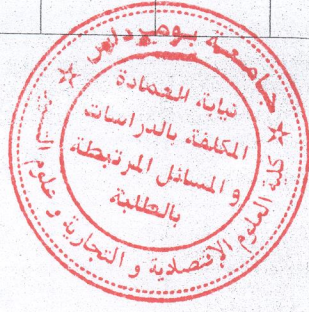 جامعة بومرداس
كلية العلوم الإقتصادية و التجارية و علوم التسيير
نيابة العمادة
المكلفة بالدراسات
و المسائل المرتبطة
بالطلبة